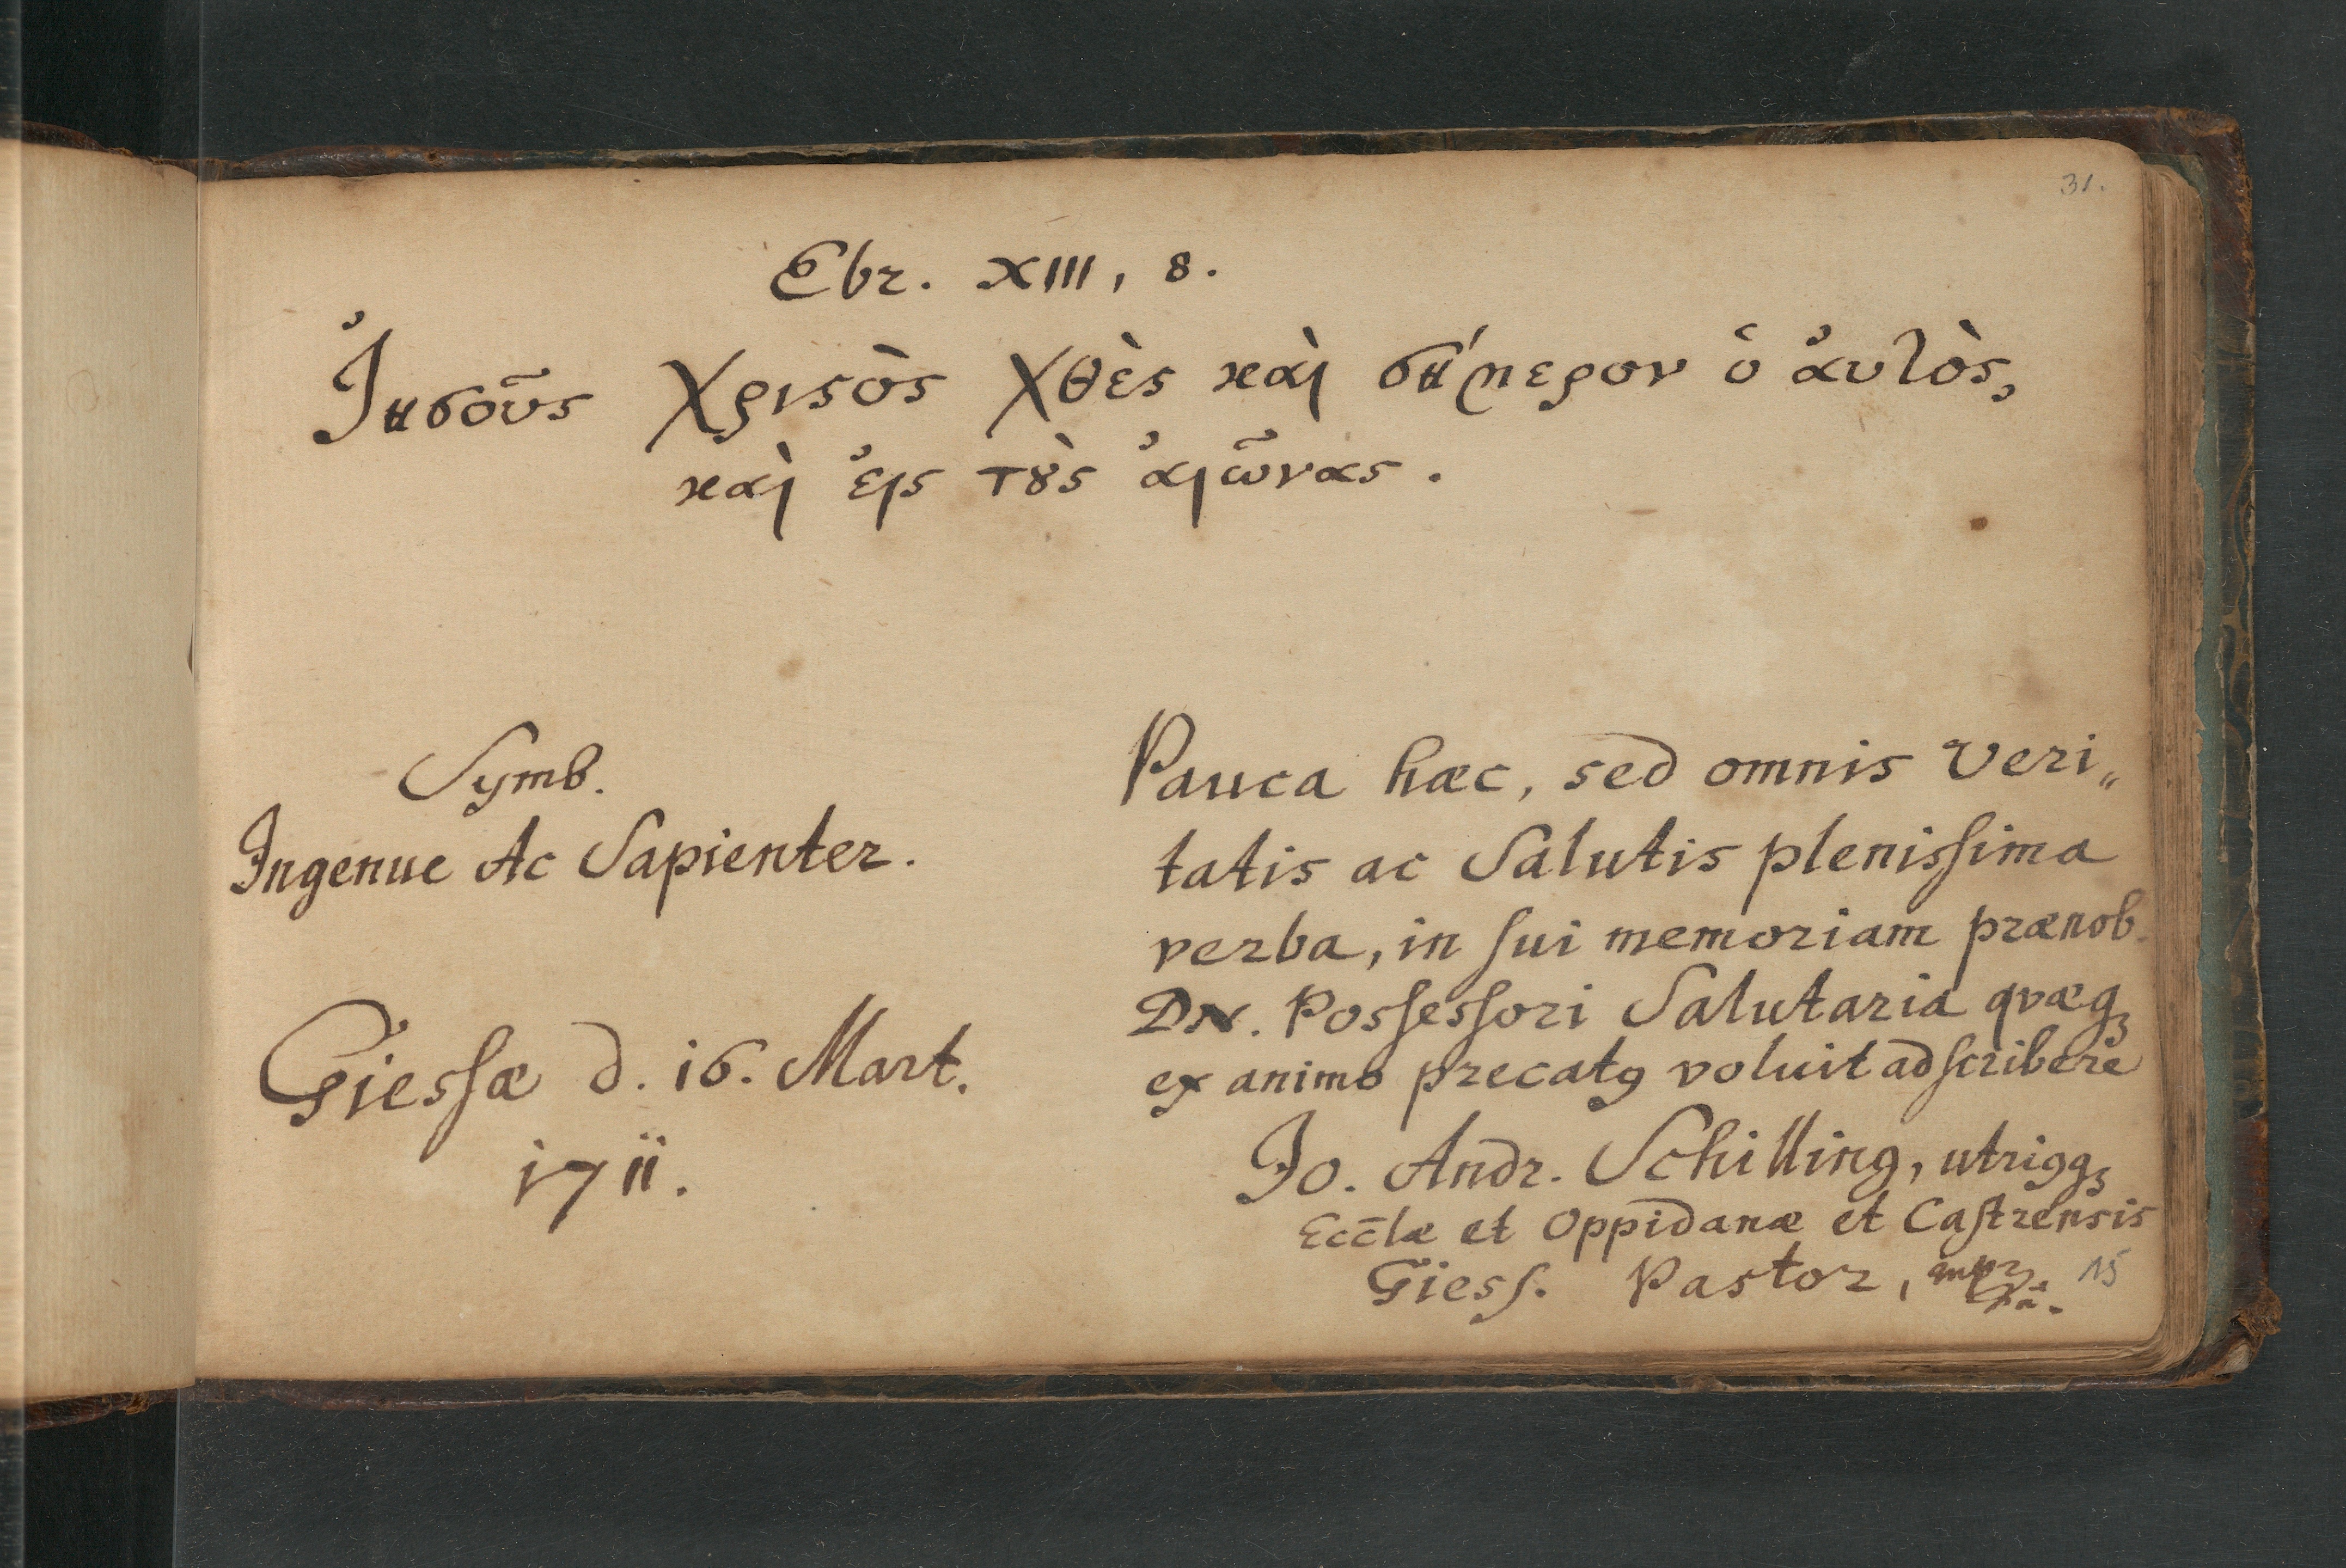 31.
Ebr. XIII, 8.
Ἰησοῦς Χριϛὸς χθὲς καὶ σήμερον ὁ ἀυτὸς,
καὶ ἐις τȣ̀ς ἀιῶνας.
Symb.
Ingenue Ac Sapienter.
Giesſæ d. 16. Mart.
1711.
Pauca hæc, sed omnis Veri„
tatis ac Salutis plenisſima
verba, in ſui memoriam prænob.
DN. Posſesſori Salutaria qvæqꝫ
ex animo precatꝰ voluit adſcribere
Jo. Andr. Schilling, utriꝰqꝫ
Ecc̄læ et Oppidanæ et Caſtrensis
Giesſ. Pastor, mpr
15